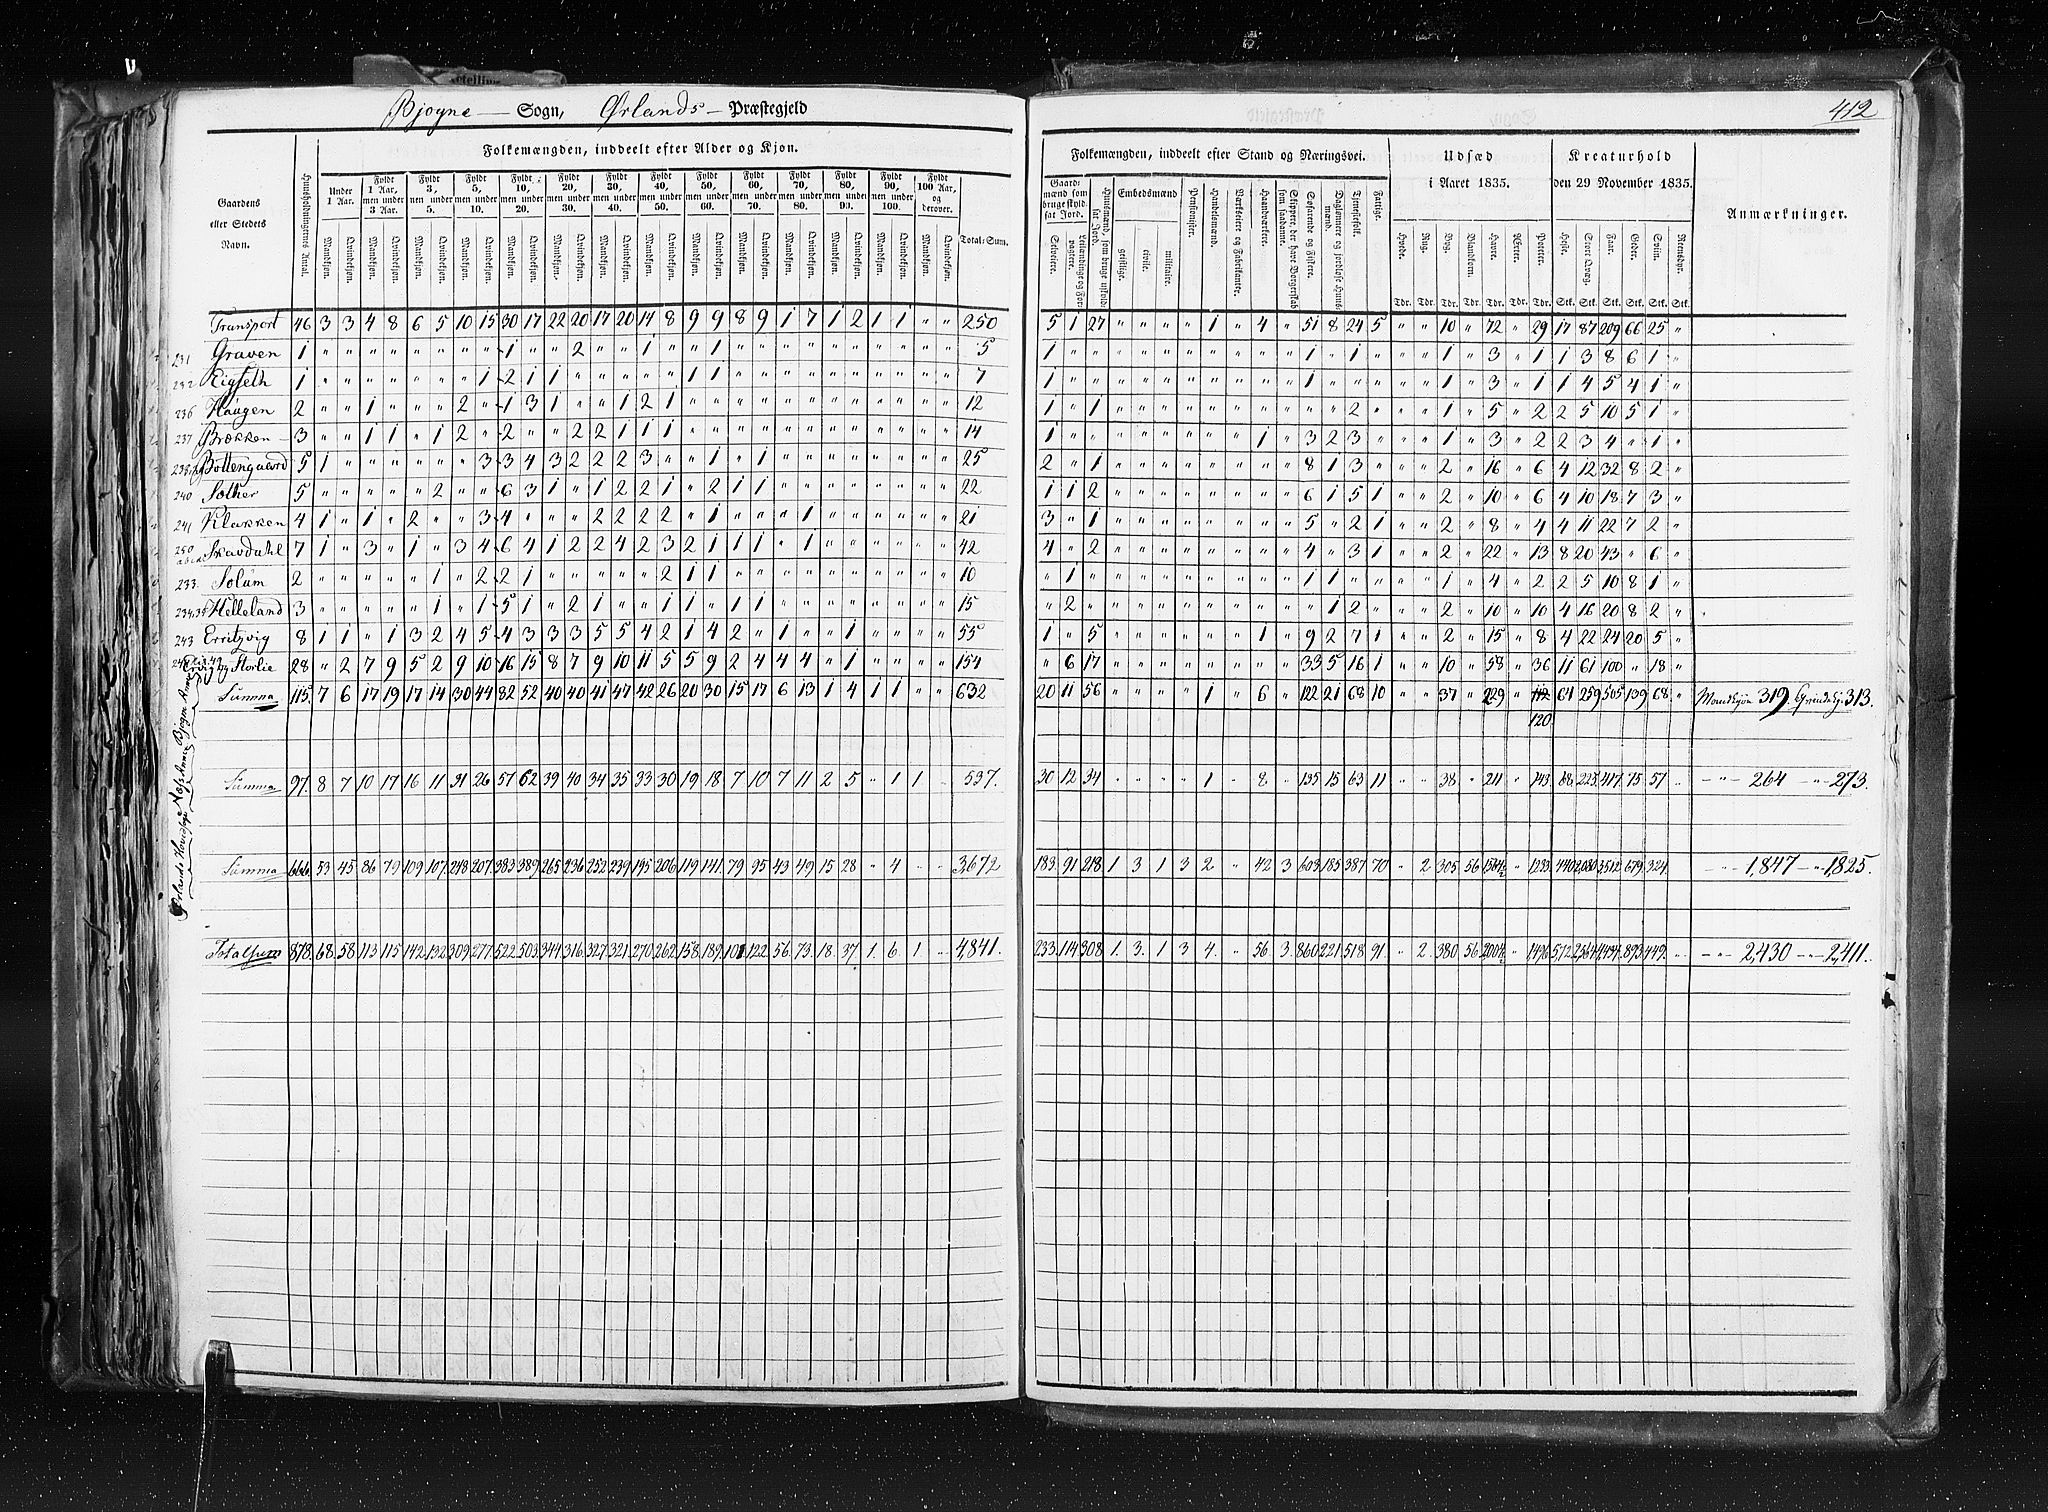 etelling
412
Bjogne — Sogn, Ørlands — Præstegjeld
Folkemængden, inddeelt efter Alder og Kjøn.
Folkemængden, inddeelt efter Stand og Næringsvei.
Udsæd i Aaret 1835.
Kreaturhold den 29 November 1835.
Anmærkninger.
Gaardens eller Stedets Navn.
Huusholdningernes Antal.
Under 1 Aar.
Fyldt 1 Aar, men under 3 Aar.
Fyldt 3, men under 5.
Fyldt 5, men under 10.
Fyldt 10, men under 20.
Fyldt 20, men under 30.
Fyldt 30, men under 40.
Fyldt 40, men under 50.
Fyldt 50, men under 60.
Fyldt 60, men under 70.
Fyldt 70, men under 80.
Fyldt 80, men under 90.
Fyldt 90, men under 100.
Fyldt 100 Aar, og derover.
Mandkjøn. Qvindekjøn.
Total-Sum.
Gaardmænd som bruge skyldsat Jord.
Selveiere.
Leilændinge og Forpagtere.
Huusmænd, som bruge uskyldsat Jord.
Embedsmænd
geistlige. civile. militaire.
Pensionister.
Handelsmænd.
Værkseiere og Fabrikanter.
Haandværkere.
Skippere, der have Borgerskab som saadanne.
Søfarende og Fiskere.
Daglønnere og jordløse Huusmænd.
Tjenestefolk.
Fattige.
Hvede. Rug. Byg. Blandkorn. Havre. Erter. Poteter.
Heste. Stort Qvæg. Faar. Geder. Sviin. Reensdyr.
Tdr. Tdr. Tdr. Tdr. Tdr. Tdr. Tdr. Stk. Stk. Stk. Stk. Stk. Stk.
Transport 46 3 3 4 8 6 5 10 15 30 17 22 20 17 20 14 8 9 9 8 9 1 7 1 2 1 1 " " 250 5 1 27 " " " " 1 " 4 " 51 8 24 5 " " 10 " 72 " 29 17 87 209 66 25 "
231 Graven 1 " " " " " " " " 1 " " 2 " " 1 " " 1 " " " " " " " " " " 5 1 " " " " " " " " " " 1 " 1 " " " 1 " 3 " 1 1 3 8 6 1 "
232 Eigseth 1 " " " " " " " 1 2 1 1 " " " " " 1 1 " " " " " " " " " " 7 1 " " " " " " " " " " 1 " " " " " 1 " 3 " 1 1 4 5 4 1 "
236 Haugen 2 " " 1 " " " 2 " 1 3 1 " " 1 2 1 " " " " " " " " " " " " 12 1 " 1 " " " " " " " " " " 2 " " " 1 " 5 " 2 2 5 10 5 1 "
237 Brækken 3 " " 1 1 " 1 2 " 2 " " 2 2 1 1 1 " " " " " " " " " " " " 14 1 " " " " " " " " 1 " 3 2 3 " " " 1 " 3 " 2 2 3 4 " 1 "
Bottengaard 5 1 " " " " " " 3 3 4 3 2 2 2 3 " " 1 " 1 " " " " " " " " 25 2 " 1 " " " " " " " " 8 1 3 " " " 2 " 16 " 6 4 12 32 8 2 "
240 Sæther 5 " " " " " 2 " " 6 3 1 " 1 2 2 1 " 2 1 1 " " " " " " " " 22 1 1 2 " " " " " " " " 6 1 5 1 " " 2 " 10 " 6 4 10 18 7 3 "
241 Klakken 4 1 " 1 " 2 " " 3 4 " " " 2 2 2 2 " 1 " " " 1 " " " " " " 21 3 " 1 " " " " " " " " 5 " 2 1 " " 2 " 8 " 4 4 11 22 7 2 "
250 Skavdahl 7 1 " 3 " 1 " 3 4 6 4 1 2 2 4 2 3 2 1 1 1 " 1 " " " " " " 42 4 " 2 " " " " " " " " 4 " 3 1 " " 2 " 22 " 13 8 20 43 " 6 "
233. Solum 2 " " " " " 1 " 2 2 1 " " " " " 2 1 1 " " " " " " " " " " 10 " 1 " " " " " " " " " 1 1 " " " " 1 " 4 " 2 2 5 10 8 1 "
234.35 Helleland 3 " " " " " 1 " 1 5 1 " 2 1 " " 1 1 " 1 1 " " " " " " " " 15 " 2 " " " " " " " " " " 1 2 " " " 2 " 10 " 10 4 16 20 8 2 "
243 Erritzvig 8 1 1 " 1 3 2 4 5 4 3 3 3 5 5 4 2 1 4 2 " 1 " " 1 " " " " 55 1 " 5 " " " " " " 1 " 9 2 7 1 " " 2 " 15 " 8 4 22 24 20 5 "
og Storlie 28 " 2 7 9 5 2 9 10 16 15 8 7 9 10 11 5 5 9 2 4 4 4 " 1 " " " " 154 " 6 17 " " " " " " " " 33 5 16 1 " " 10 " 58 " 36 11 61 100 " 18 "
Summa 115 7 6 17 19 17 14 30 44 82 52 40 40 41 47 42 26 20 30 15 17 6 13 1 4 1 1 " " 632 20 11 56 " " " " 1 " 6 " 122 21 68 10 " " 37 " 229 " 112 64 259 505 139 68 " Mandkjøn 319. Qvindekj. 313.
120
Summa 97. 8 7 10 17 16 11 31 26 57 62 39 40 34 35 33 30 19 18 7 10 7 11 2 5 " 1 1 " 537. 30 12 34 " " " " 1 " 8 " 135 15 63 11 " " 38 " 211 " 143 88 225 417 75 57 " " 264 " 273.
Summa 666 53 45 86 79 109 107 248 207 383 389 265 236 252 239 195 206 119 141 79 95 43 49 15 28 " 4 " " 3,672 183 91 218 1 3 1 3 2 " 42 3 603 185 387 70 " 2 305 56 1564½ " 1233 440 2080 3512 679 324 " 1,847 " 1,825.
Totalsum 878. 68. 58 113 115 142 132 309 277. 522. 503. 344 316. 327. 321. 270 262 158. 189. 101 122 56. 73. 18. 37. 1. 6. 1. " 4,841. 233. 114 308 1. 3. 1 3 4. " 56 3. 860 221 518 91. " 2. 380 56 2004½ " 1496 572 2564 4434 893 449. " 2,430 " 2,411.